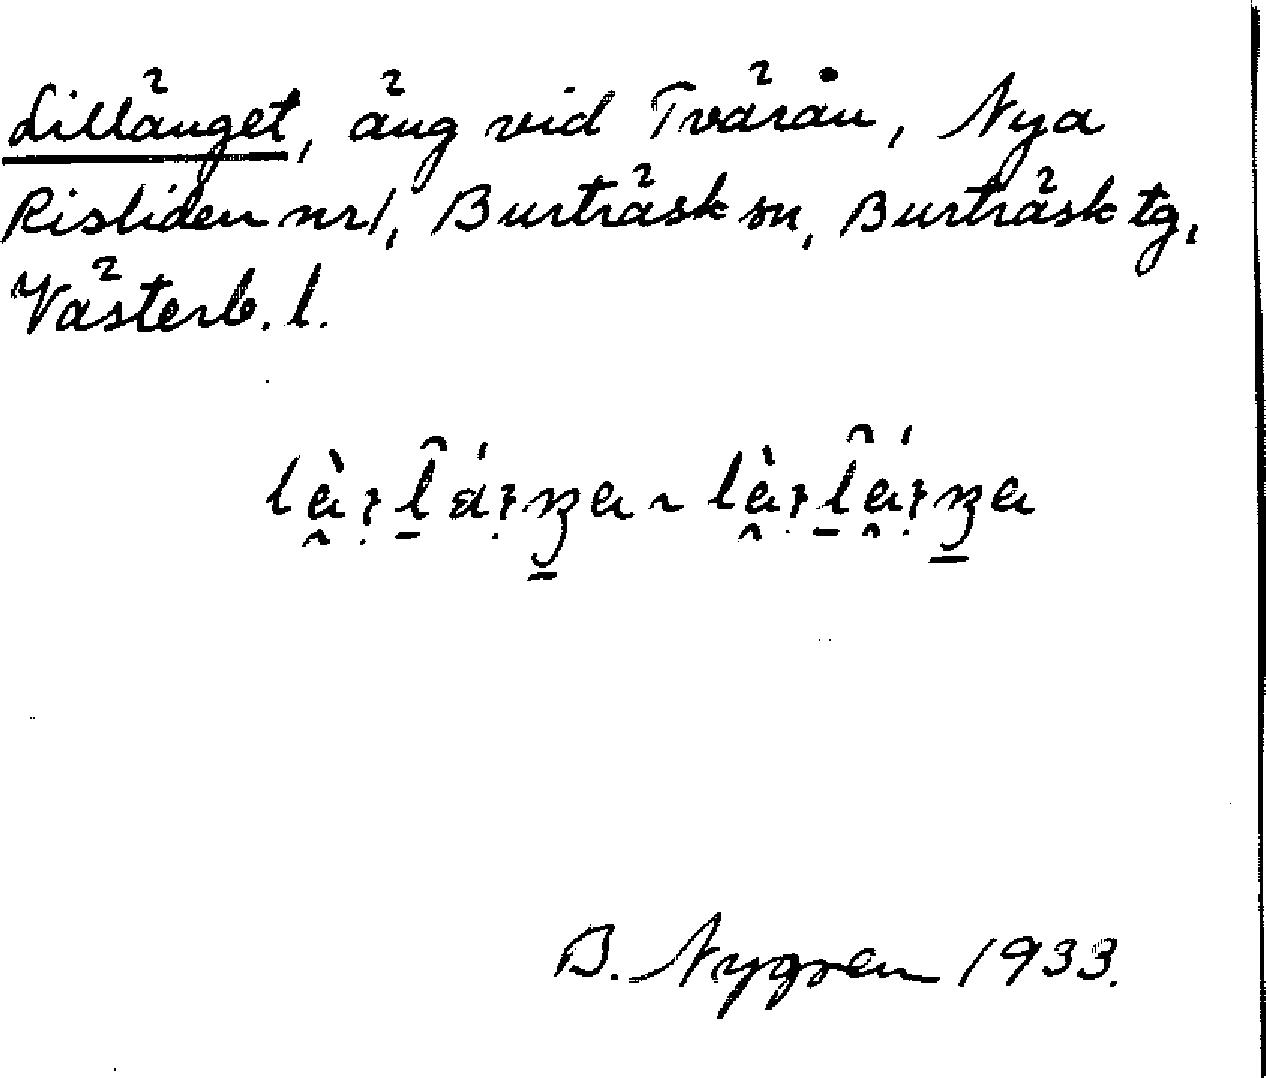 Lillänget, äng vid Tvärån, Nya
Risliden nr 1, Burträsk sn, Burträsk tg,
Västerb. l.
B. Nygren 1933.